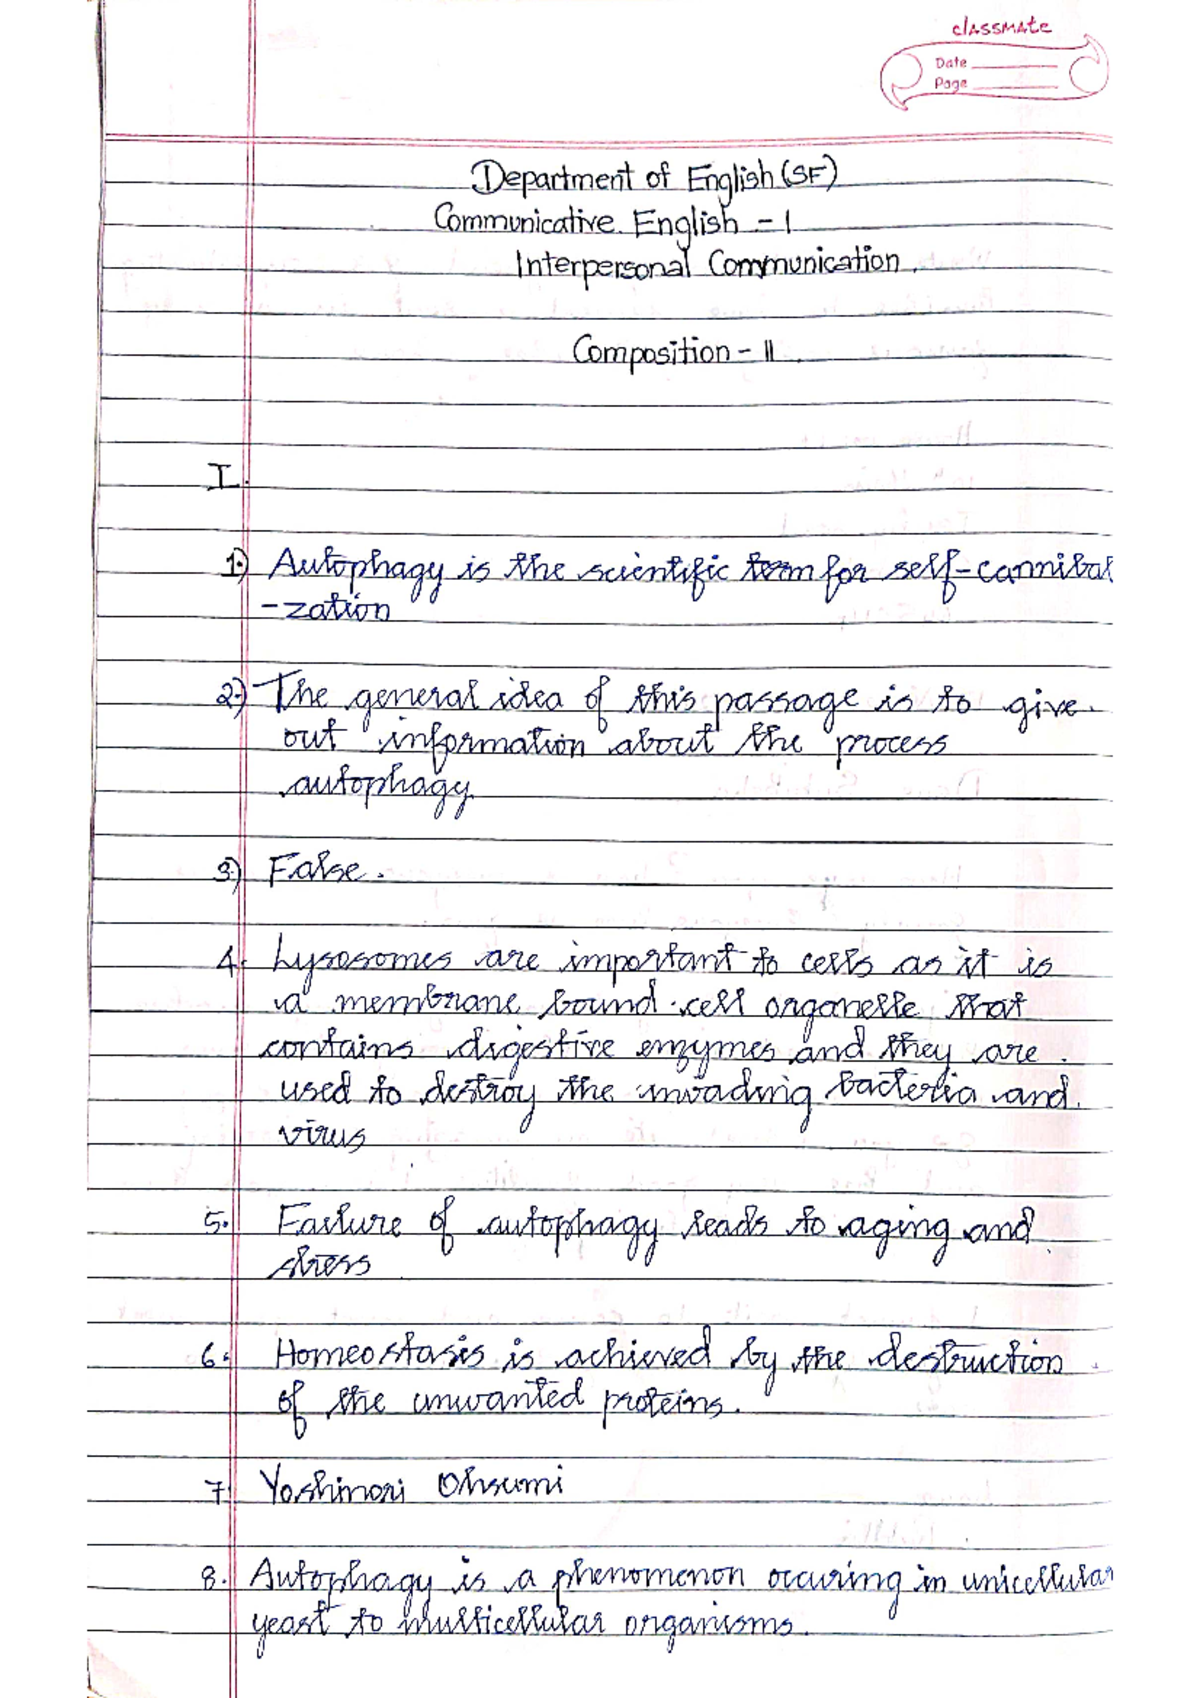 classmate
Date
Page
Department of English (SF)
Communicative English - I
Interpersonal Communication.
Composition - II
I.
1.) Autophagy is the scientific term for self-cannibal
-zation
2.) The general idea of this passage is to give
out information about the process
autophagy.
3.) False.
4. Lysosomes are important to cells as it is
a membrane bound cell organelle that
contains digestive enzymes and they are
used to destroy the invading bacteria and
virus
5. Failure of autophagy leads to aging and
stress
6. Homeostasis is achieved by the destruction
of the unwanted proteins.
7. Yoshinori Ohsumi
8. Autophagy is a phenomenon occuring in unicellular
yeast to multicellular organisms.